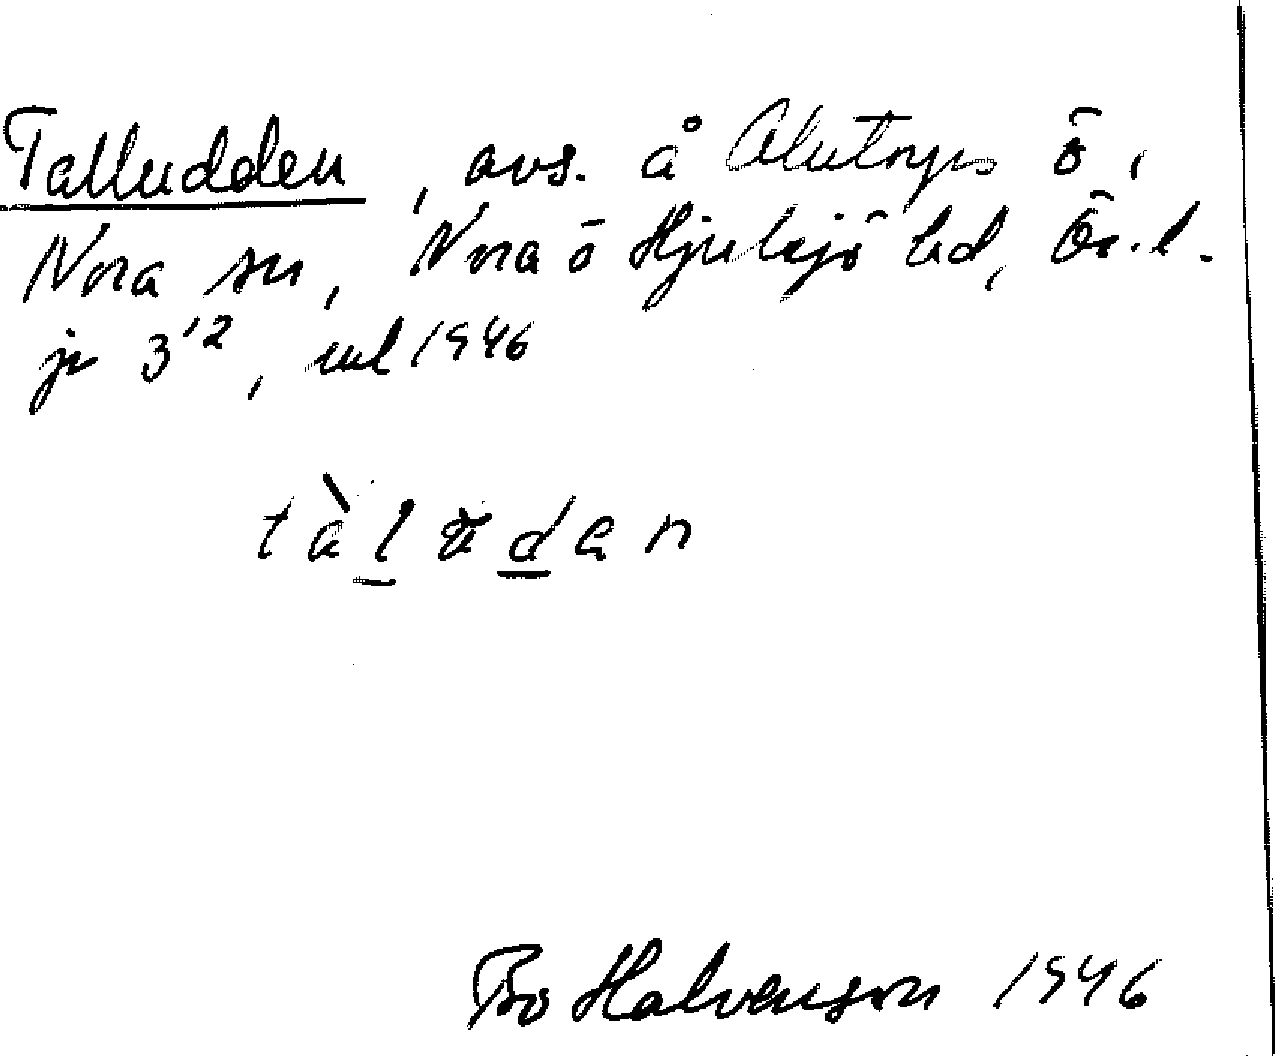 Talludden, avs. å Alntorps ö,
Nora sn, Nora ō Hjulsjö bd, Ör.l.
jr 3'2, ml 1946
tàludan
Bo Halvenson 1946